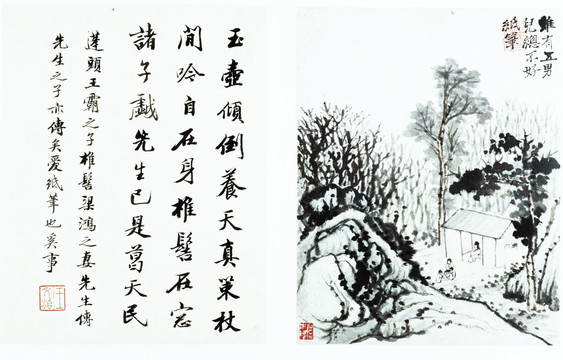 雖有五男
兒總不好
紙筆
玉壺傾倒養天真策杖
閒吟自在身椎髻在窓
諸子戲先生已是葛天民
蓬頭王霸之子椎髻梁鴻之妻先生傳
先生之子亦傳奚愛紙筆也奚事